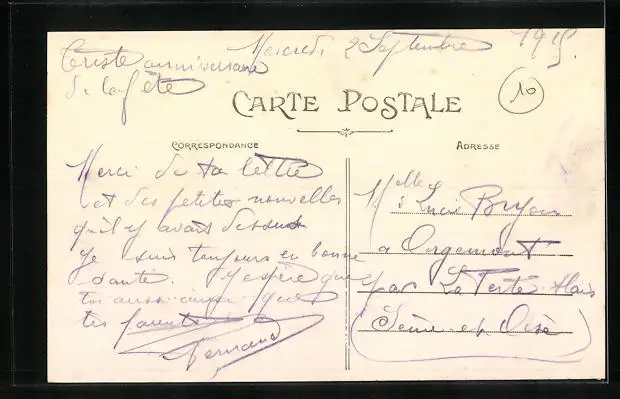 Triste anniversaire
de la fête
Mercredi 2 Septembre 1915.
10
CARTE POSTALE
CORRESPONDANCE
ADRESSE
Merci de ta lettre
et des petites nouvelles
qu'il y avait dessus
Je suis toujours en bonne
santé. J'espère que
toi aussi ainsi que
tes parents
Fernand
Melle Lucie
à Orgemont
par La Ferté Alais
(Seine et Oise)